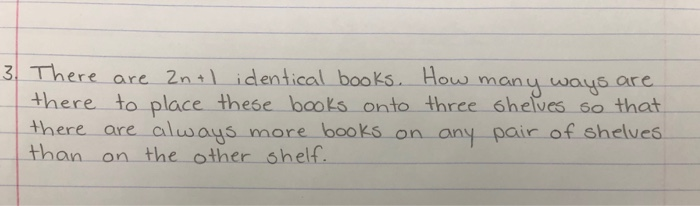 3. There are 2n+1 identical books. How many ways are
there to place these books onto three shelves so that
there are always more books on any pair of shelves
than on the other shelf.